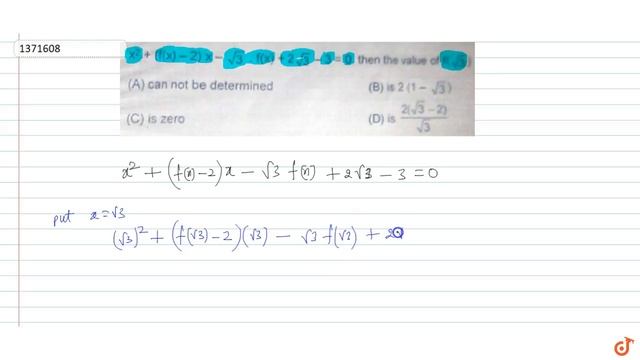 1371608
x² + (f(x) – 2) x – √3 f(x) + 2√3 – 3 = 0, then the value of f(√3)
(A) can not be determined
(B) is 2 (1 – √3)
(C) is zero
(D) is 2(√3 – 2)/√3
x² + (f(x) – 2) x – √3 f(x) + 2√3 – 3 = 0
put x = √3
(√3)² + (f(√3) – 2)(√3) – √3 f(√3) + 2